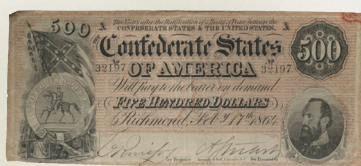 Two Years after the Ratification of a Treaty of Peace between the
CONFEDERATE STATES & THE UNITED STATES.
500
Confederate States
500
32197
OF AMERICA
32197
Will pay to the bearer on demand
FIVE HUNDRED DOLLARS
Richmond, Feb 17th 1864